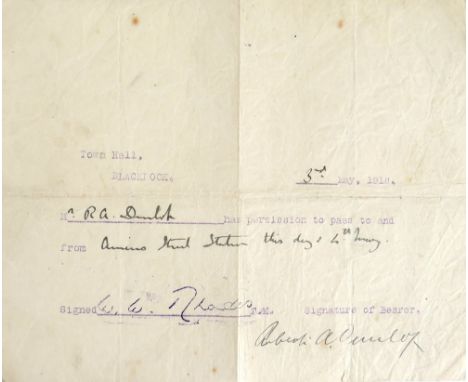 Town Hall,
BLACKROCK.
3rd May, 1916.
Mr. R.A. Dunlop has permission to pass to and
from Amiens Street Station this day & 4th May.
Signed W. W. Rhodes P.M. Signature of Bearer.
Robert A. Dunlop